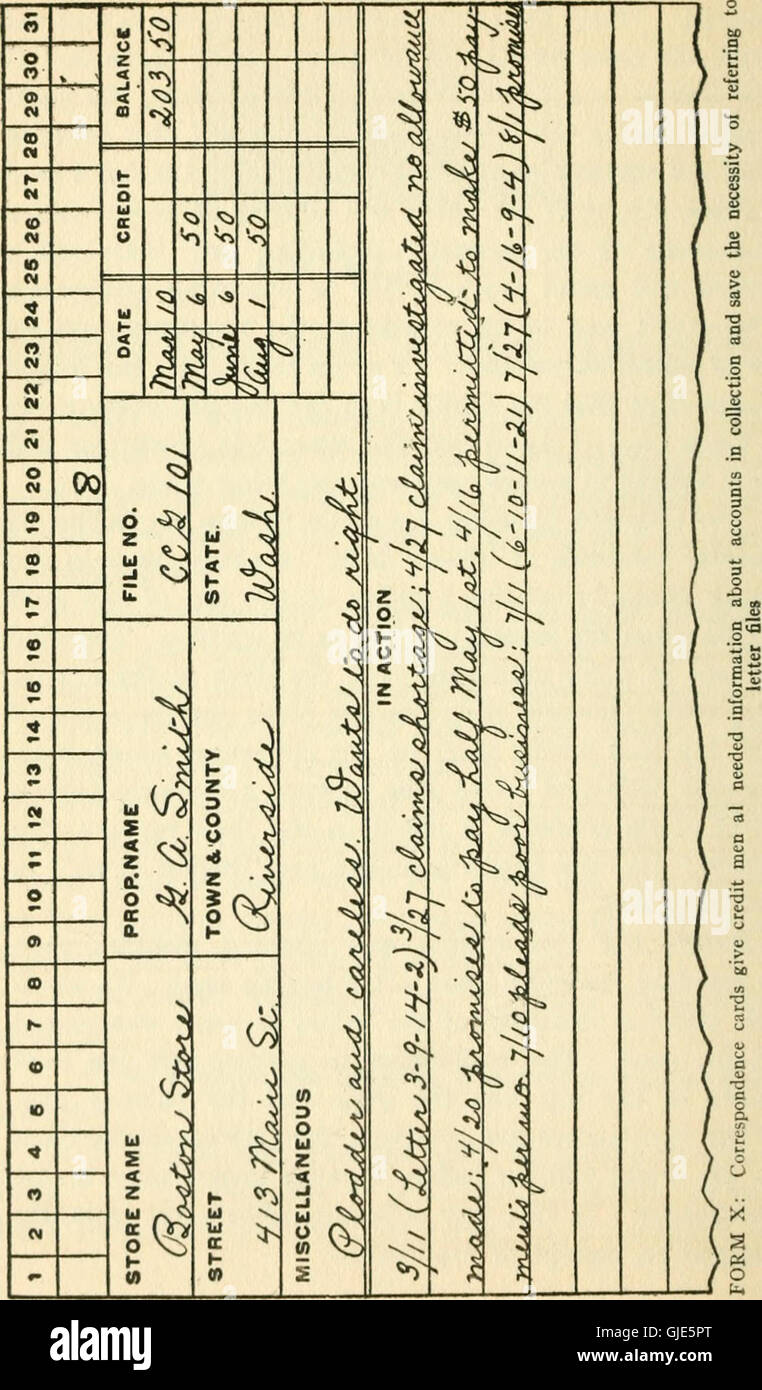 1 2 3 4 5 6 7 8 9 10 11 12 13 14 15 16 17 18 19 20 21 22 23 24 25 26 27 28 29 30 31
8
STORE NAME PROP. NAME FILE NO. DATE CREDIT BALANCE
Boston Store G. A. Smith 101 Mar 10 203 50
May 6 50
STREET TOWN & COUNTY STATE. June 6 50
413 Main St. Riverside Wash. Aug 1 50
MISCELLANEOUS
Plodder and careless. Wants to do right.
IN ACTION
3/11 (Letter 3-9-14-2) 3/27 claims shortage; 4/27 claim investigated no allowance
made; 4/20 promises to pay half May 1st. 4/16 permitted to make $50 pay-
ments per mo. 7/10 pleads poor business; 7/11 (6-10-11-21) 7/27 (4-16-9-4) 8/1 promise
FORM X: Correspondence cards give credit men al needed information about accounts in collection and save the necessity of referring to
letter files
alamy
alamy
alamy
Image ID: GJE5PT
www.alamy.com